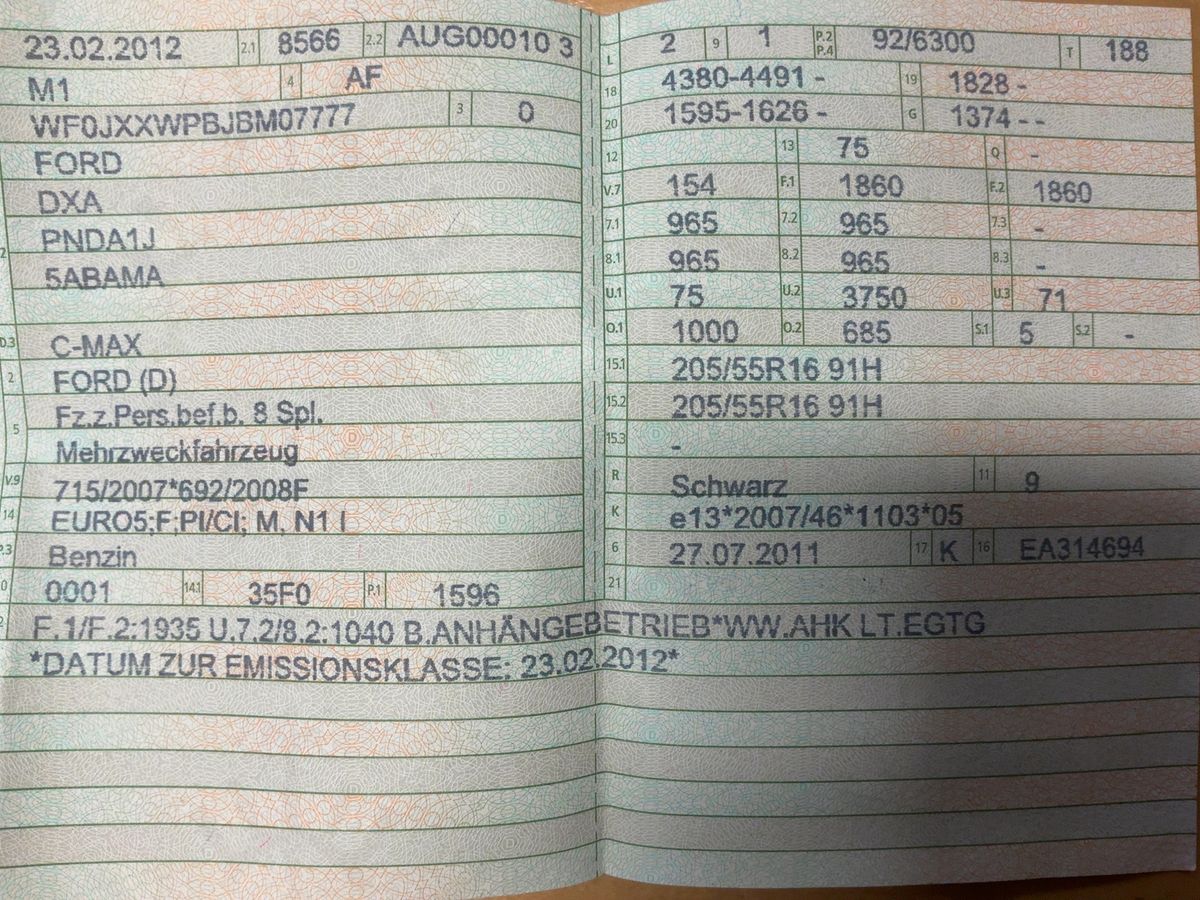 23.02.2012 2.1 8566 2.2 AUG00010 3
M1 4 AF
WF0JXXWPBJBM07777 3 0
FORD
DXA
2 PNDA1J
5ABAMA
D.3 C-MAX
2 FORD (D)
5 Fz.z.Pers.bef.b. 8 Spl.
Mehrzweckfahrzeug
V.9 715/2007*692/2008F
14 EURO5;F;PI/CI; M, N1 I
P.3 Benzin
0 0001 14.1 35F0 P.1 1596
L 2 9 1 P.2 P.4 92/6300 T 188
18 4380-4491 - 19 1828 -
20 1595-1626 - G 1374 - -
12 13 75 Q -
V.7 154 F.1 1860 F.2 1860
7.1 965 7.2 965 7.3 -
8.1 965 8.2 965 8.3 -
U.1 75 U.2 3750 U.3 71
O.1 1000 O.2 685 S.1 5 S.2 -
15.1 205/55R16 91H
15.2 205/55R16 91H
15.3 -
R Schwarz 11 9
K e13*2007/46*1103*05
6 27.07.2011 17 K 16 EA314694
21
2 F.1/F.2:1935 U.7.2/8.2:1040 B.ANHÄNGEBETRIEB*WW.AHK LT.EGTG
*DATUM ZUR EMISSIONSKLASSE: 23.02.2012*